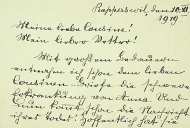 Rapperswil, den 10. XI.
1919.
Meine liebe Cousine!
Mein lieber Vetter!
Mit großem Bedauern
entnahm ich schon dem lieben
Cousinen-Briefe die schwere
Erkrankung von Anna. Und
kommt schon die Nachricht
ihres Todes! Hoffentlich hat sie